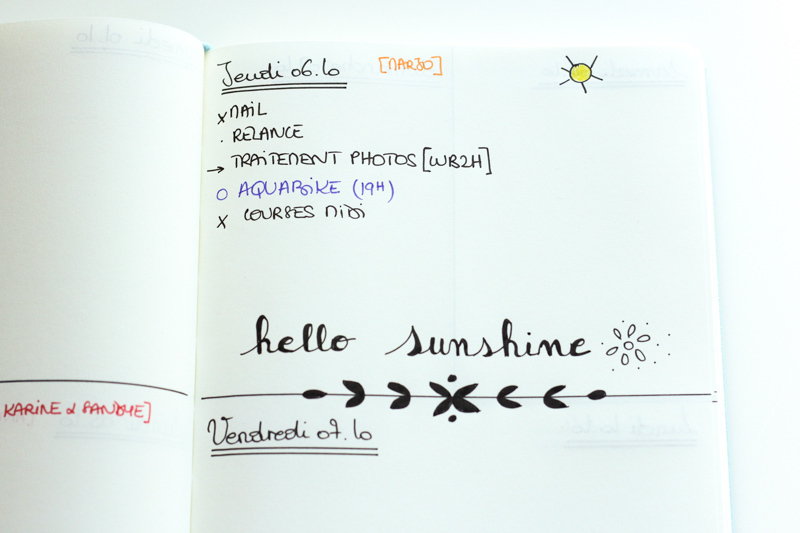 Jeudi 06.10 [MARJO]
x MAIL
. RELANCE
→ TRAITEMENT PHOTOS [WB2H]
O AQUABIKE (19H)
x COURSES MIDI
hello sunshine
KARINE &
Vendredi 07.10